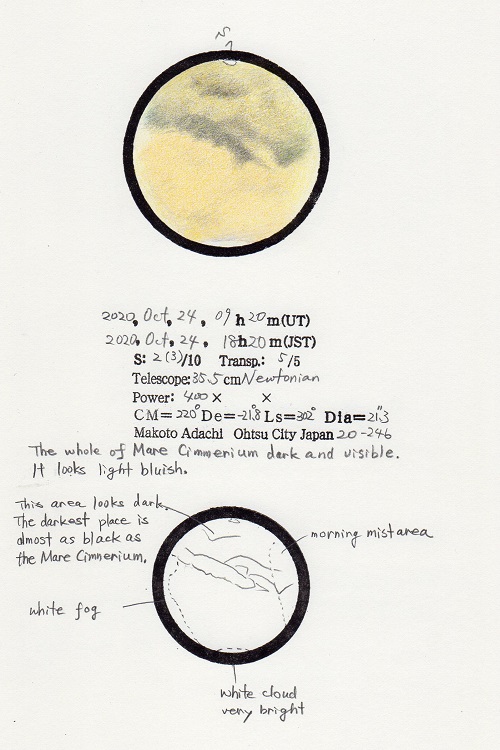 S
2020, Oct, 24, 09 h 20 m(UT)
2020, Oct, 24, 18h20 m(JST)
S: 2(3)/10 Transp.: 5/5
Telescope:35.5 cm Newtonian
Power: 400 × ×
CM=220° De=-21.8 Ls=302° Dia=21."3
Makoto Adachi Ohtsu City Japan 20-246
The whole of Mare Cimmerium dark and visible.
It looks light bluish.
This area looks dark.
The darkest place is
almost as black as
the Mare Cimmerium.
morning mist area
white fog
white cloud
very bright